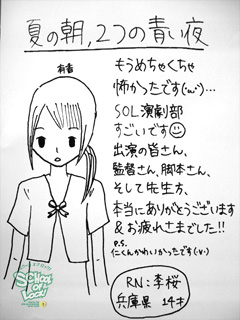 夏の朝,2つの青い夜
有香
もうめちゃくちゃ
怖かったです(・ω・`)…
SOL演劇部
すごいです☺
出演の皆さん、
監督さん、脚本さん、
そして先生方、
本当にありがとうございます
&お疲れさまでした!!
P.S.
仁くんかわいかったです(・v・)
SCHOOL
OF
LOCK!
RN:李桜
兵庫県 14才